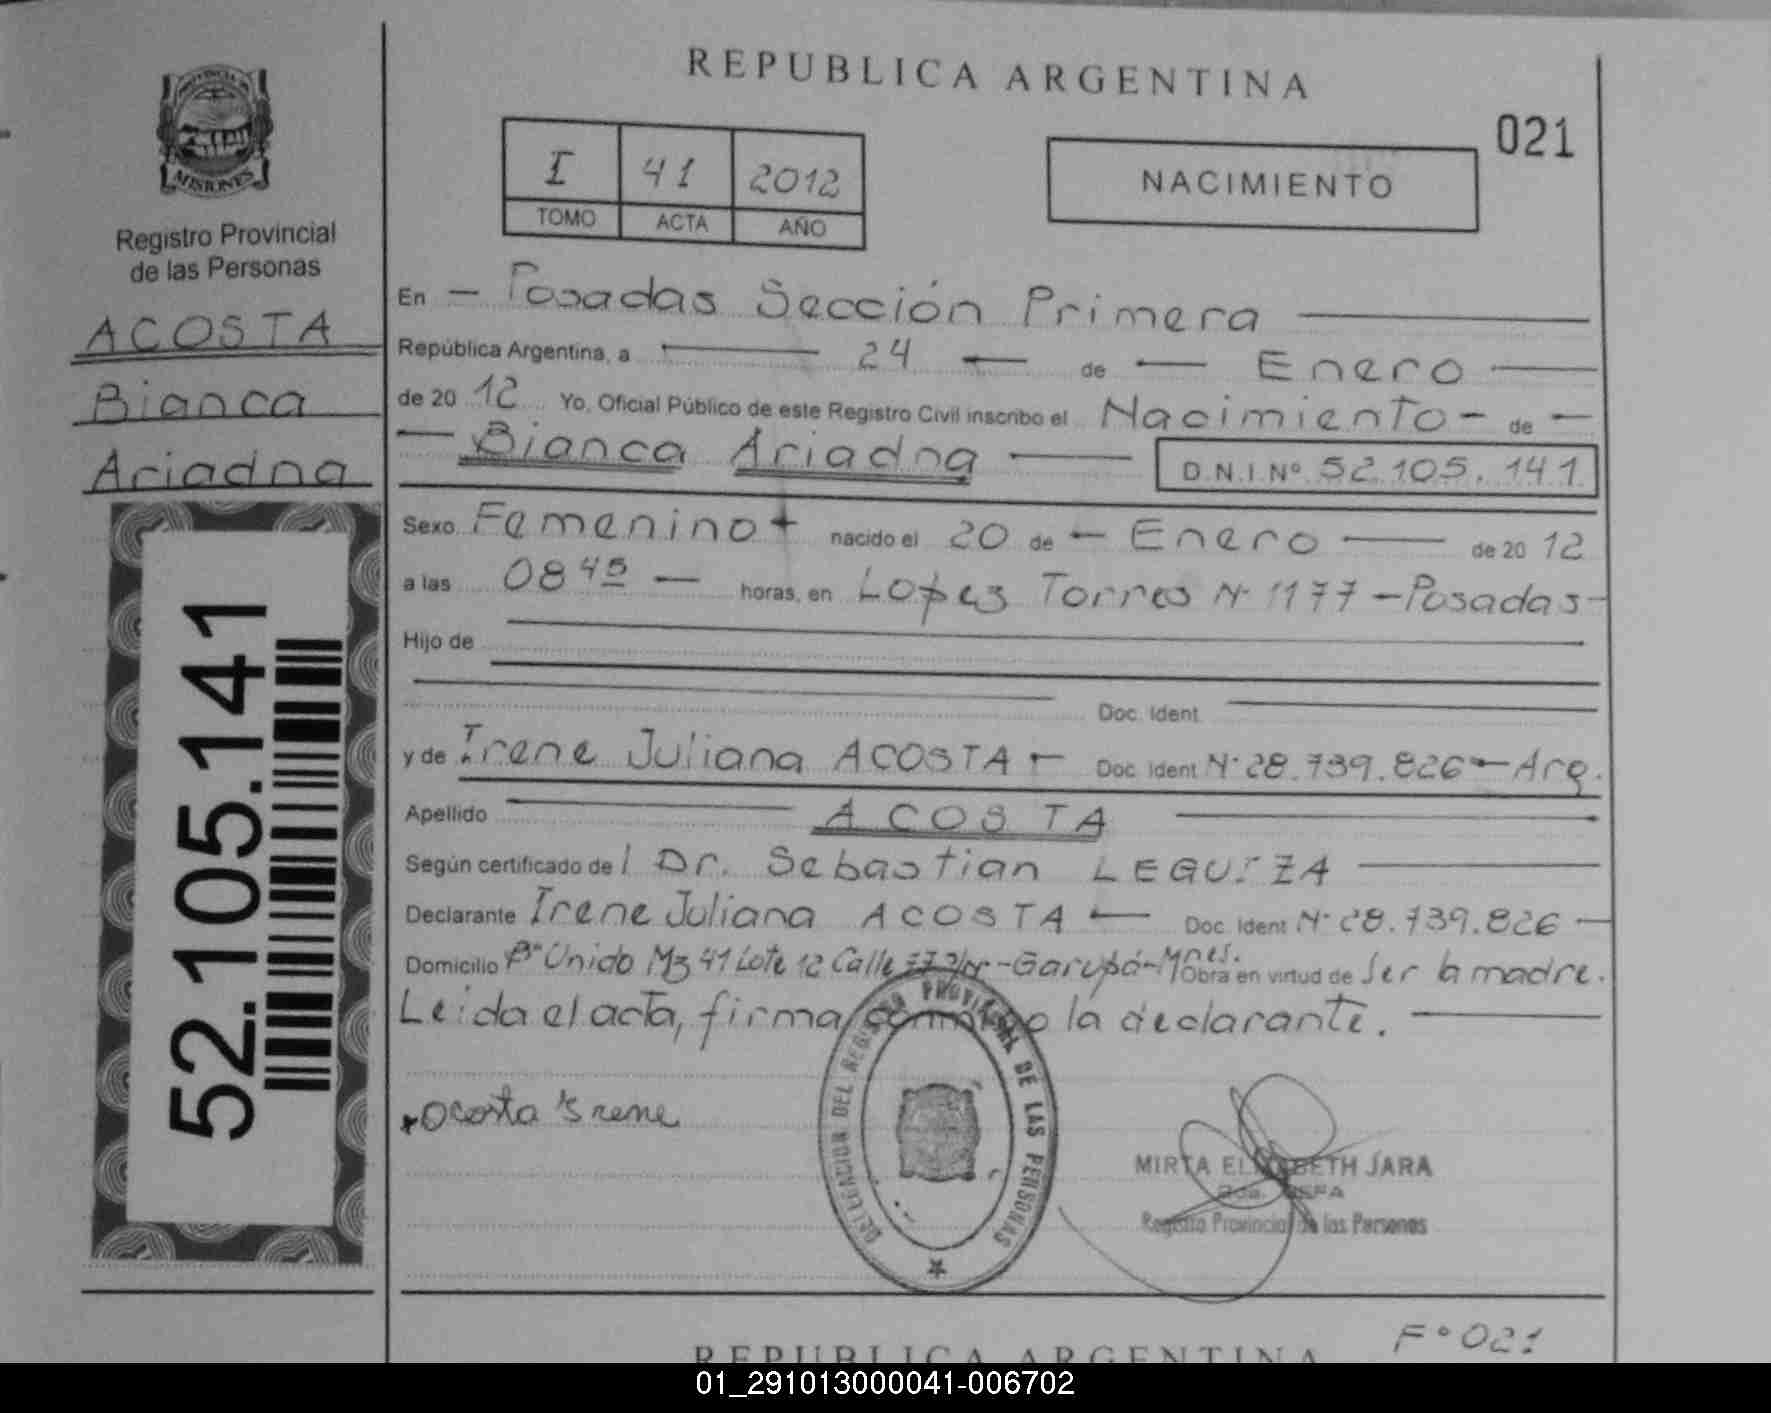 REPUBLICA ARGENTINA
021
PROVINCIA DE
MISIONES
Registro Provincial
de las Personas
ACOSTA
Bianca
Ariadna
52.105.141
I 41 2012
TOMO ACTA AÑO
NACIMIENTO
En - Posadas Sección Primera
República Argentina, a 24 de Enero
de 20 12 Yo, Oficial Público de este Registro Civil inscribo el Nacimiento - de -
Bianca Ariadna D.N.I. Nº 52.105.141
Sexo Femenino nacido el 20 de - Enero de 20 12
a las 08 45 - horas, en Lopez Torres Nº 1177 - Posadas -
Hijo de
Doc. Ident.
y de Irene Juliana ACOSTA - Doc. Ident Nº 28.739.826 - Arg.
Apellido ACOSTA
Según certificado de l Dr. Sebastian
Declarante Irene Juliana ACOSTA - Doc. Ident Nº 28.739.826 -
Domicilio Bº Unido Mz 41 Lote 12 Calle - Garupá - Mnes. Obra en virtud de Ser la madre.
Leida el acta, firma conmigo la declarante.
acosta Irene
DELEGACION DEL REGISTRO PROVINCIAL DE LAS PERSONAS
MIRTA ELIZABETH JARA
Registro Provincial de las Personas
Fº 021
REPUBLICA ARGENTINA
01_291013000041-006702